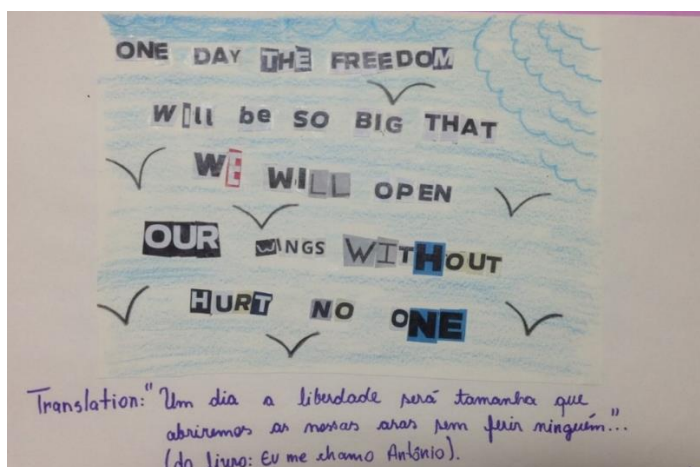 ONE DAY THE FREEDOM
Will be SO BIG THAT
WE WILL OPEN
OUR WINGS WITHOUT
HURT NO ONE
Translation: " Um dia a liberdade será tamanha que
abriremos as nossas asas sem ferir ninguém"...
(do livro: Eu me chamo Antônio).